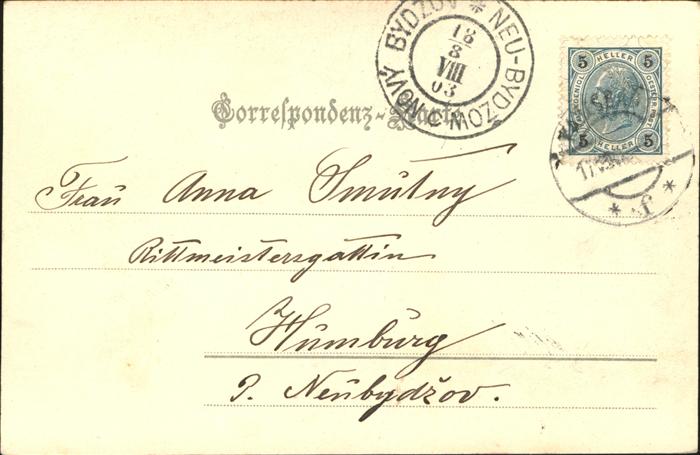 NOVÝ BYDŽOV * NEU-BYDŽOW
18/8
VIII
03
5 HELLER 5
5 HELLER 5
Correspondenz-Karte
Frau Anna Smutny
Rittmeistersgattin
Humburg
P. Neubydžov.
* f *